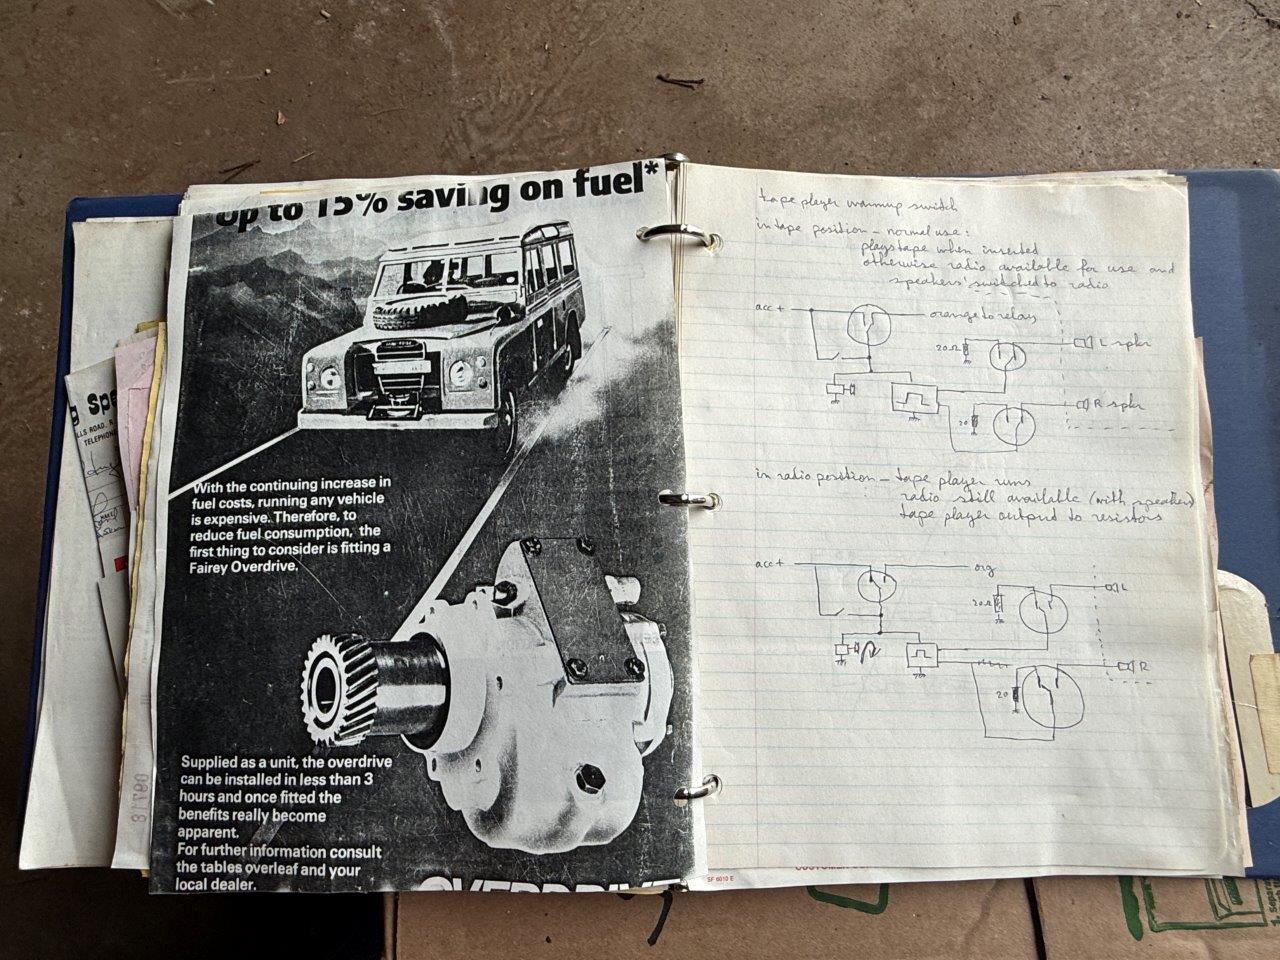 Up to 15% saving on fuel*
With the continuing increase in
fuel costs, running any vehicle
is expensive. Therefore, to
reduce fuel consumption, the
first thing to consider is fitting a
Fairey Overdrive.
Supplied as a unit, the overdrive
can be installed in less than 3
hours and once fitted the
benefits really become
apparent.
For further information consult
the tables overleaf and your
local dealer.
OVERDRIVE
tape player warmup switch
in tape position – normal use:
plays tape when inserted
otherwise radio available for use and
speakers switched to radio
acc +
orange to relay
20Ω
L spkr
20
R spkr
in radio position – tape player runs
radio still available (with speakers)
tape player output to resistors
acc +
org
20Ω
L
20
R
SF 6010 E
LLS ROAD, R
TELEPHON